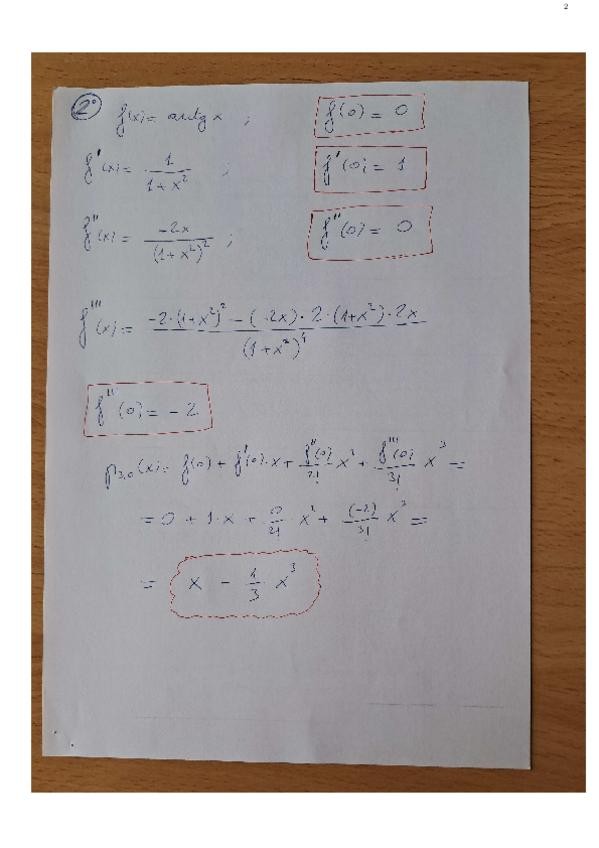 2
2º f(x) = arctg x ; f(0) = 0
f'(x) = 1/(1+x²) ; f'(0) = 1
f''(x) = -2x/(1+x²)² ; f''(0) = 0
f'''(x) = (-2·(1+x²)² - (-2x)·2·(1+x²)·2x)/(1+x²)⁴
f'''(0) = -2
p₃,₀(x) = f(0) + f'(0)·x + f''(0)/2! x² + f'''(0)/3! x³ =
= 0 + 1·x + 0/2! · x² + (-2)/3! x³ =
= x - 1/3 x³